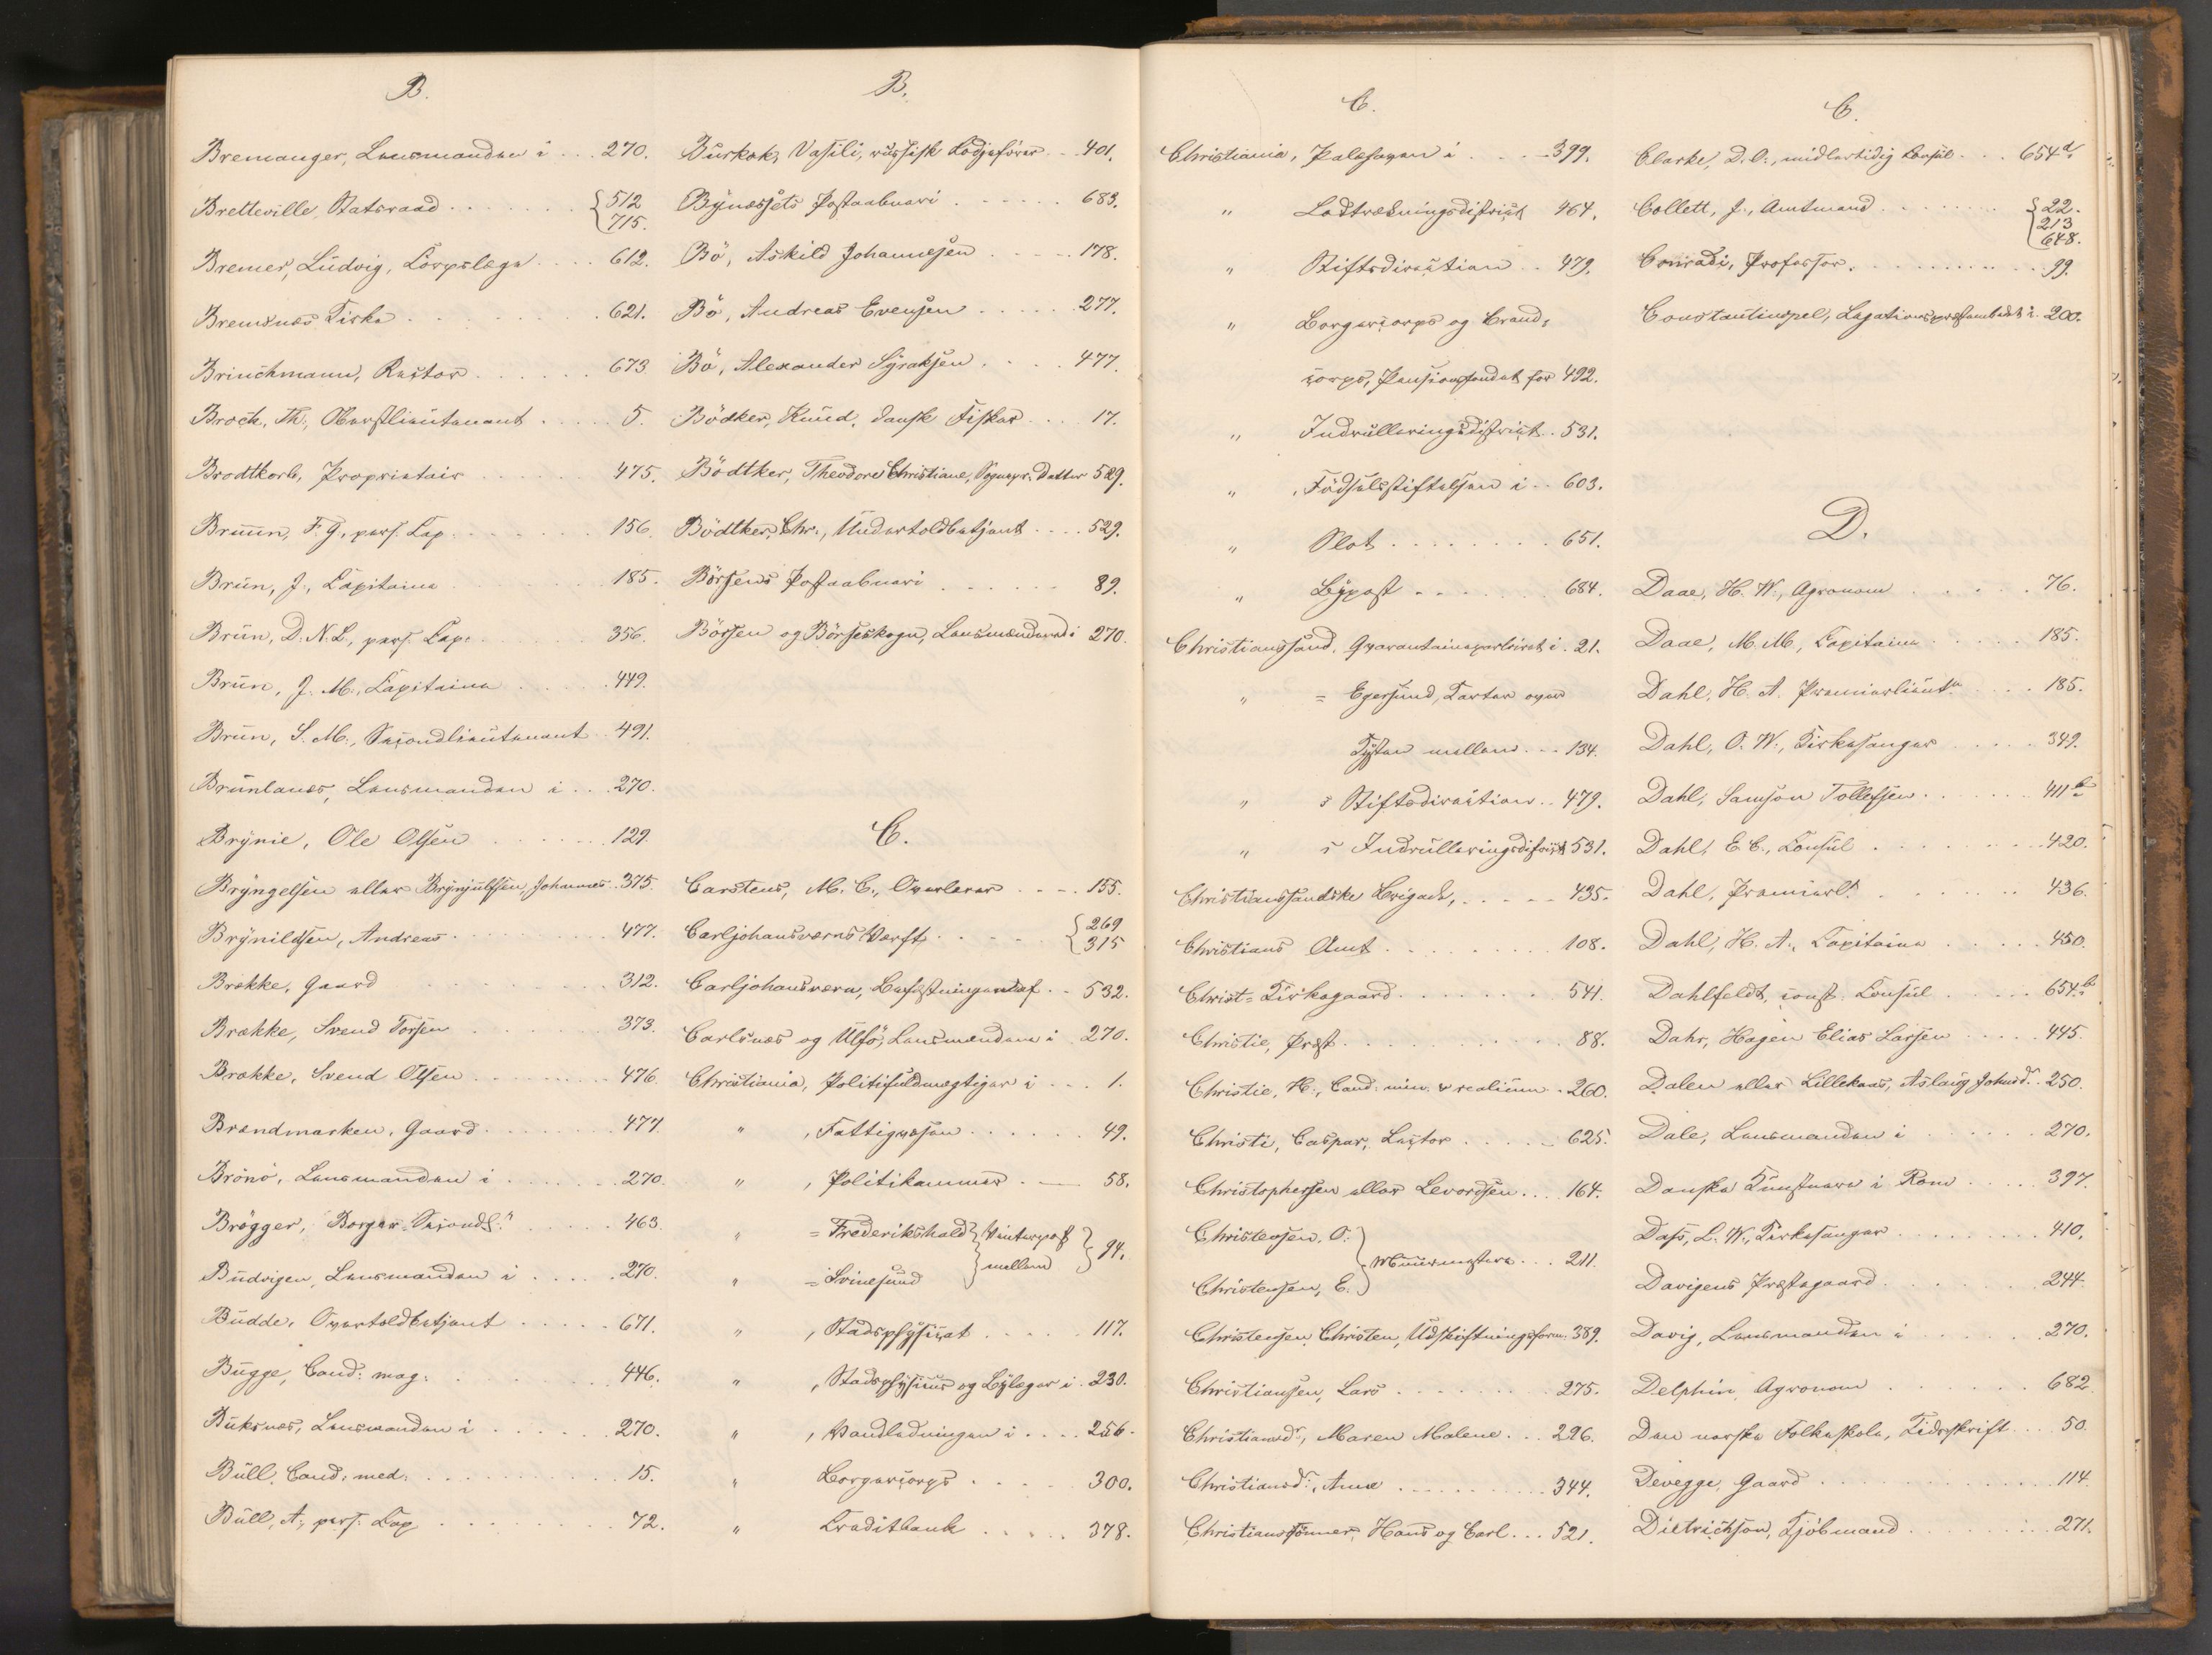 B.
Bremanger, Lensmanden i . . . 270.
Bretteville, Statsraad . . . . . . . { 512
715.
Bremer, Ludvig, Corpslæge . . . . 612.
Bremsnes Kirke . . . . . . . . . 621.
Brinchmann, Rector . . . . . . 673.
Broch, Th., Oberstlieutenant . . . . . 5.
Brodtkorb, Proprietair . . . . . . 475.
Bruun, F. G., pers. Cap. . . . . . . 156.
Brun, J., Capitaine . . . . . . . 185.
Brun, D. N. B., pers. Cap. . . . . . 356.
Brun, J. M., Capitaine . . . . . 449.
Brun, S. M., Secondlieutenant . 491.
Brunlanes, Lensmanden i . . . 270.
Brynie, Ole Olsen . . . . . . . 129.
Bryngelsen eller Brynjulfsen, Johannes . 375.
Brynildsen, Andreas . . . . . . . 477.
Brække, Gaard . . . . . . . . 312.
Brække, Svend Torsen . . . . . . 373.
Brække, Svend Olsen . . . . . . . 476.
Brændmarken, Gaard . . . . . . . 477.
Brönö, Lensmanden i . . . . . . . 270.
Brøgger, Borger-Secondlt. . . . . . 463.
Budvigen, Lensmanden i . . . . . 270.
Budde, Overtoldbetjent . . . . . 671.
Bugge, Cand: mag: . . . . . . . 446.
Buksnes, Lensmanden i . . . . . . 270.
Bull, Cand: med: . . . . . . . . . 15.
Bull, A., pers. Cap . . . . . . . . 72.
B.
Burkok, Vasili, russisk Lodjefører . . 401.
Bynæssets Postaabneri . . . . . . 683.
Bö, Askild Johannesen . . . . . 178.
Bö, Andreas Evensen . . . . . 277.
Bö, Alexander Syraksen . . . . 477.
Bödker, Knud, dansk Fisker . . . 17.
Bödtker, Theodore Christiane, Sognepr. Datter 529.
Bödtker, Chr., Undertoldbetjent . . . . 529.
Börsens Postaabneri . . . . . . 89.
Börsen og Börseskogn, Lensmændene i 270.
C.
Carstens, M. C., Overlærer . . . . 155.
Carljohansværns Værft . . . . . { 269
315
Carljohansværn, Befæstningen af . . 532.
Carlsnæs og Ulfö, Lensmændene i 270.
Christiania, Politifuldmægtiger i . . . 1.
" , Fattigvæsen . . . . . . 49.
" , Politikammer . — 58.
" = Frederikshald } Vinterpost
mellem } 94.
" = Svinesund
" , Stadsphysicat . . . . . 117.
" , Stadsphysicus og Bylæger i . 230.
" , Vandledningen i . . . . 256.
" Borgercorps . . . . . 300.
" Creditbank . . . . . 378.
C.
Christiania, Paléhaven i . . . . 399.
" Lodtrækningsdistrict 464.
" Stiftsdirection . . 479.
" Borgercorps og Brand=
corps, Pensionsfondet for 492.
" Indrulleringsdistrict . . 531.
" , Födselsstiftelsen i . . 603.
" Slot . . . . . . . . 651.
" Bypost . . . . . . . 684.
Christianssand, Qvarantainequarteret i . 21.
" = Egersund, Karter over
Kysten mellem . . . 134.
" s Stiftsdirection . . 479.
" s Indrulleringsdistrict 531.
Christianssandske Brigade, . . . . . 435.
Christians Amt . . . . . . . . . 108.
Christ= Kirkegaard . . . . . . . 541.
Christie, Præst . . . . . . . . . . . 88.
Christie, H., Cand: min. & realium . 260.
Christi, Caspar, Lector . . . . . 625.
Christophersen eller Levordsen . . . . 164.
Christensen, O. }
Muurmestere . . . 211.
Christensen, E. }
Christensen, Christen, Udskiftningsform. 389.
Christiansen, Lars . . . . . . . 275.
Christiansdr, Maren Malene . . . 296.
Christiansdr, Anne . . . . . . . . . 344.
Christianssønner, Hans og Carl . . . 521.
C.
Clarke, D. O., midlertidig Consul . . . 654d.
Collett, J., Amtmand . . . . . . . . . { 22.
213
648.
Conradi, Professor . . . . . . . . . . . 99.
Constantinopel, Legationspræsteembedet i . 200.
D.
Daae, H. W., Agronom . . . . . . 76.
Daae, M. M., Capitaine . . . . . 185.
Dahl, H. A. Premierlieutn . . . 185.
Dahl, O. W., Kirkesanger . . . . . 349.
Dahl, Samson Tollefsen . . . . . . 411b.
Dahl, E. C., Consul . . . . . . . . . 420.
Dahl, Premierlt. . . . . . . . 436.
Dahl, H. A., Capitaine . . . . . . 450.
Dahlfeldt, const. Consul . . . . . 654.b
Dahr, Hagen Elias Larsen . . . . . 445.
Dalen eller Lillekaas, Aslaug Johnsdr. . 250.
Dale, Lensmanden i . . . . . . . 270.
Danske Kunstnere i Rom . . . . . 397.
Dass, L. W., Kirkesanger . . . . . . . . . 410.
Davigens Præstegaard . . . . . . . . 244.
Davig, Lensmanden i . . . . . . . 270.
Delphin, Agronom . . . . . . . . 682.
Den norske Folkeskole, Tidsskrift . . . 50.
Devegge, Gaard . . . . . . . . . . . . 114.
Dietrichson, Kjöbmand . . . . . . . . . 271.